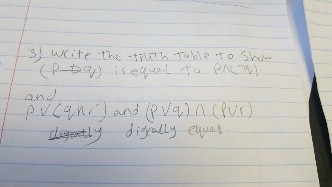 3) write the truth table to show
(p → q) is equal to p ∧ ~q.
and
p ∨ (q ∩ r) and (p ∨ q) ∩ (p ∪ r)
digrally equal